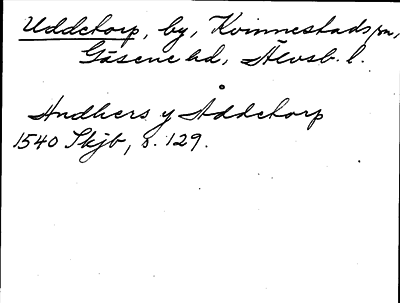 Uddetorp, by, Kvinnestads sn,
Gäsene hd, Älvsb. l.
Andhers y Åddetorp
1540 Skjb, s. 129.